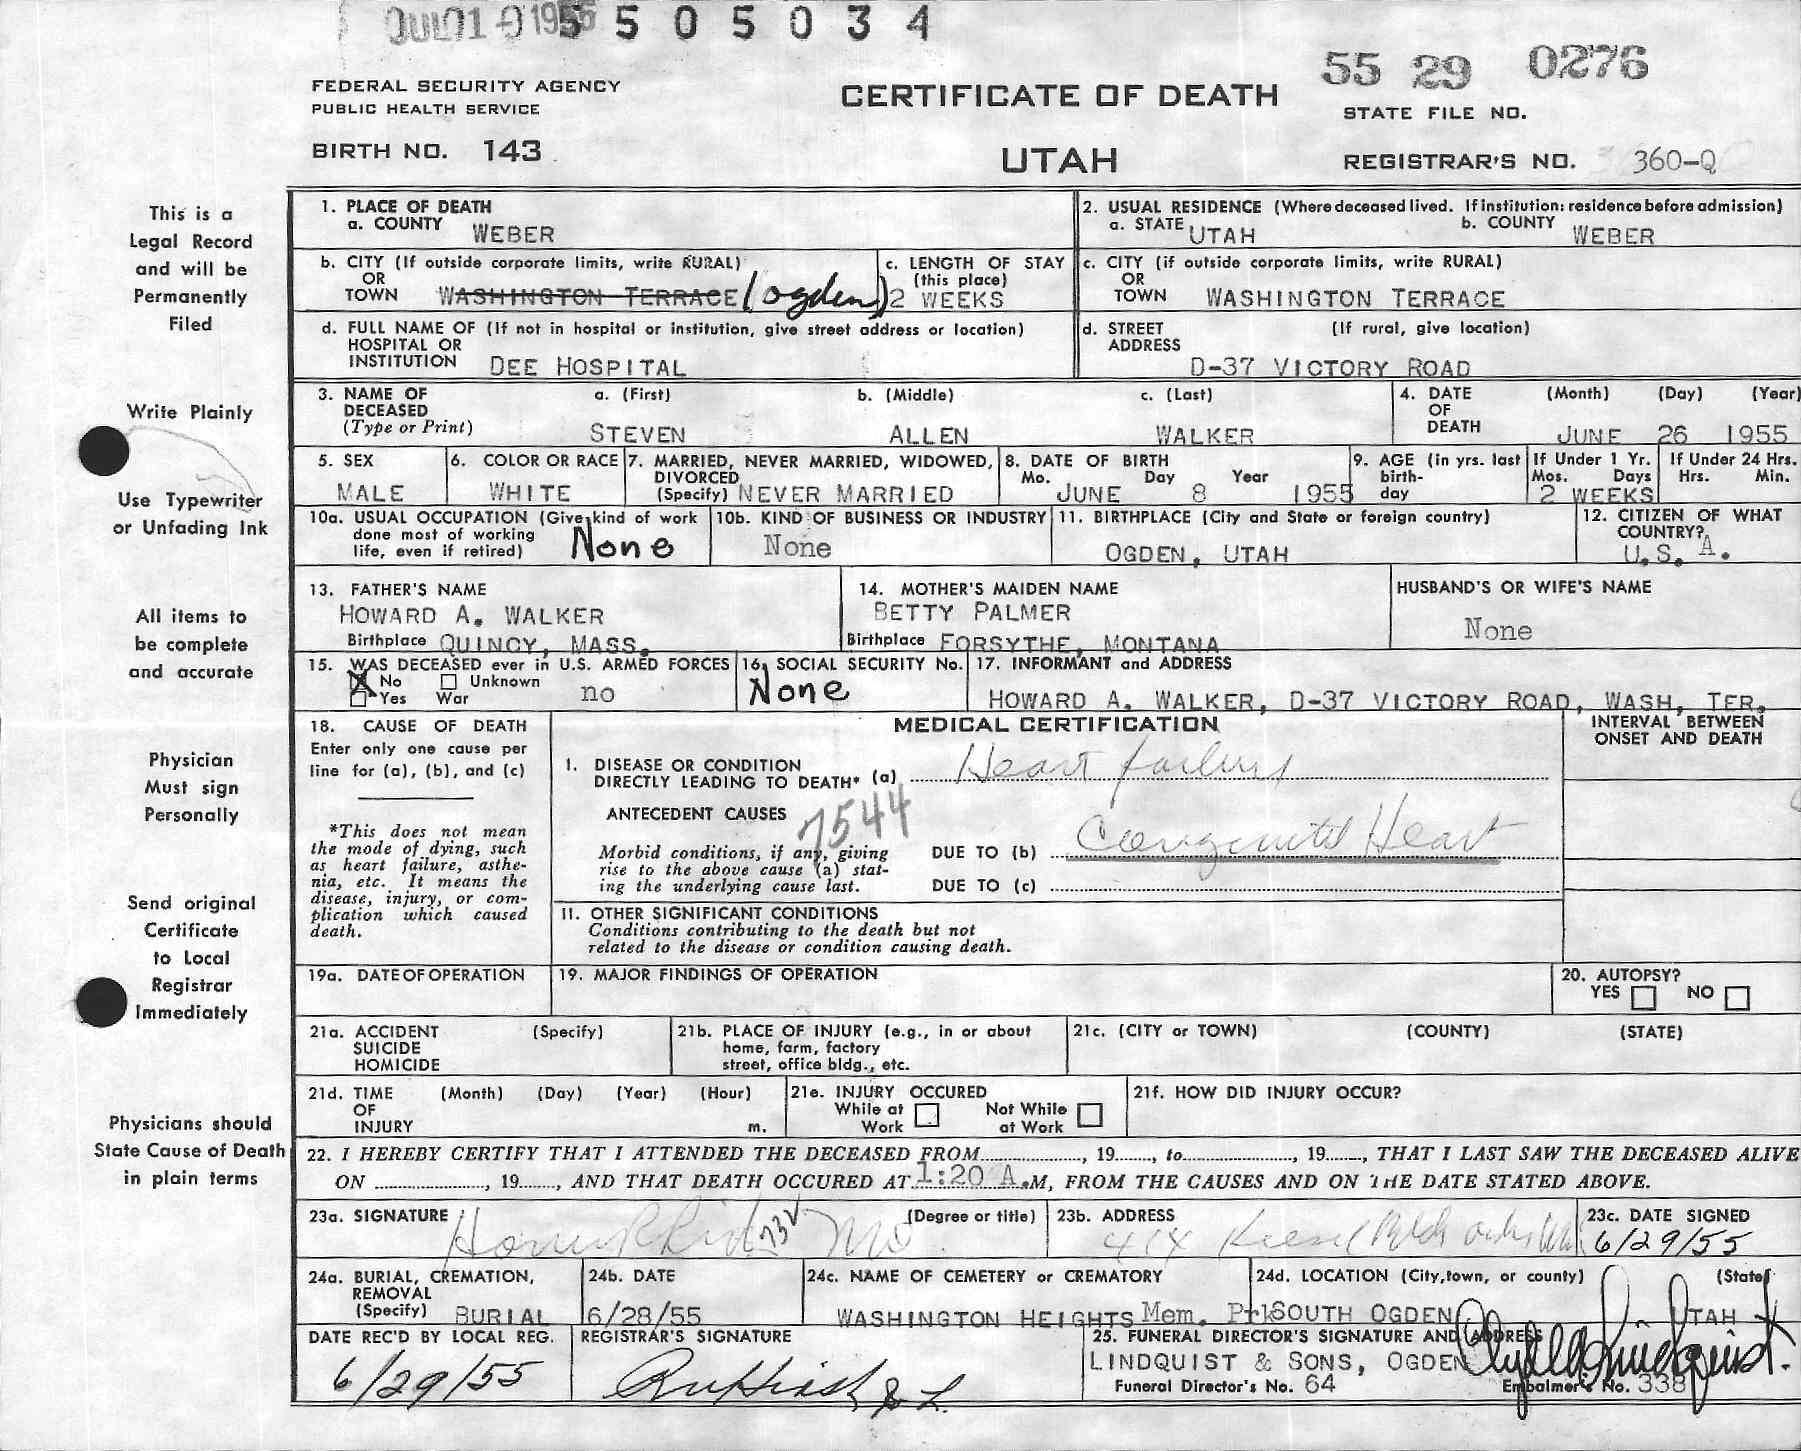 JUL 10 1955
5505034
55 29 0276
FEDERAL SECURITY AGENCY
PUBLIC HEALTH SERVICE
CERTIFICATE OF DEATH
STATE FILE NO.
BIRTH NO. 143
UTAH
REGISTRAR'S NO. 360-Q
This is a
Legal Record
and will be
Permanently
Filed
Write Plainly
Use Typewriter
or Unfading Ink
All items to
be complete
and accurate
Physician
Must sign
Personally
Send original
Certificate
to Local
Registrar
Immediately
Physicians should
State Cause of Death
in plain terms
1. PLACE OF DEATH
a. COUNTY WEBER
2. USUAL RESIDENCE (Where deceased lived. If institution: residence before admission)
a. STATE UTAH b. COUNTY WEBER
b. CITY (If outside corporate limits, write RURAL)
OR
TOWN WASHINGTON TERRACE (Ogden)
c. LENGTH OF STAY
(this place)
2 WEEKS
c. CITY (if outside corporate limits, write RURAL)
OR
TOWN WASHINGTON TERRACE
d. FULL NAME OF (If not in hospital or institution, give street address or location)
HOSPITAL OR
INSTITUTION DEE HOSPITAL
d. STREET (If rural, give location)
ADDRESS
D-37 VICTORY ROAD
3. NAME OF a. (First) b. (Middle) c. (Last)
DECEASED
(Type or Print) STEVEN ALLEN WALKER
4. DATE (Month) (Day) (Year)
OF
DEATH JUNE 26 1955
5. SEX
MALE
6. COLOR OR RACE
WHITE
7. MARRIED, NEVER MARRIED, WIDOWED,
DIVORCED
(Specify) NEVER MARRIED
8. DATE OF BIRTH
Mo. Day Year
JUNE 8 1955
9. AGE (in yrs. last
birth-
day
If Under 1 Yr.
Mos. Days
2 WEEKS
If Under 24 Hrs.
Hrs. Min.
10a. USUAL OCCUPATION (Give kind of work
done most of working
life, even if retired) None
10b. KIND OF BUSINESS OR INDUSTRY
None
11. BIRTHPLACE (City and State or foreign country)
OGDEN, UTAH
12. CITIZEN OF WHAT
COUNTRY?
U.S.A.
13. FATHER'S NAME
HOWARD A. WALKER
Birthplace QUINCY, MASS.
14. MOTHER'S MAIDEN NAME
BETTY PALMER
Birthplace FORSYTHE, MONTANA
HUSBAND'S OR WIFE'S NAME
None
15. WAS DECEASED ever in U.S. ARMED FORCES
No Unknown
Yes War no
16. SOCIAL SECURITY No.
None
17. INFORMANT and ADDRESS
HOWARD A. WALKER, D-37 VICTORY ROAD, WASH, TER.
18. CAUSE OF DEATH
Enter only one cause per
line for (a), (b), and (c)
*This does not mean
the mode of dying, such
as heart failure, asthe-
nia, etc. It means the
disease, injury, or com-
plication which caused
death.
MEDICAL CERTIFICATION
INTERVAL BETWEEN
ONSET AND DEATH
I. DISEASE OR CONDITION
DIRECTLY LEADING TO DEATH* (a) Heart failure
ANTECEDENT CAUSES 7544
Morbid conditions, if any, giving
rise to the above cause (a) stat-
ing the underlying cause last.
DUE TO (b) Congenital Heart
DUE TO (c)
II. OTHER SIGNIFICANT CONDITIONS
Conditions contributing to the death but not
related to the disease or condition causing death.
19a. DATE OF OPERATION
19. MAJOR FINDINGS OF OPERATION
20. AUTOPSY?
YES NO
21a. ACCIDENT (Specify)
SUICIDE
HOMICIDE
21b. PLACE OF INJURY (e.g., in or about
home, farm, factory
street, office bldg., etc.
21c. (CITY or TOWN) (COUNTY) (STATE)
21d. TIME (Month) (Day) (Year) (Hour)
OF
INJURY m.
21e. INJURY OCCURED
While at Not While
Work at Work
21f. HOW DID INJURY OCCUR?
22. I HEREBY CERTIFY THAT I ATTENDED THE DECEASED FROM, 19, to, 19, THAT I LAST SAW THE DECEASED ALIVE
ON, 19, AND THAT DEATH OCCURED AT 1:20 A.M, FROM THE CAUSES AND ON THE DATE STATED ABOVE.
23a. SIGNATURE (Degree or title)
732 MD
23b. ADDRESS
23c. DATE SIGNED
6/29/55
24a. BURIAL, CREMATION,
REMOVAL
(Specify) BURIAL
24b. DATE
6/28/55
24c. NAME OF CEMETERY or CREMATORY
WASHINGTON HEIGHTS Mem. Prk
24d. LOCATION (City, town, or county) (State)
SOUTH OGDEN, UTAH
DATE REC'D BY LOCAL REG.
6/29/55
REGISTRAR'S SIGNATURE
25. FUNERAL DIRECTOR'S SIGNATURE AND ADDRESS
LINDQUIST & SONS, OGDEN
Funeral Director's No. 64
Embalmer's No. 338